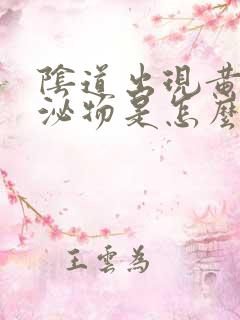 陰道出現黃
泌物是怎麼
王雲為